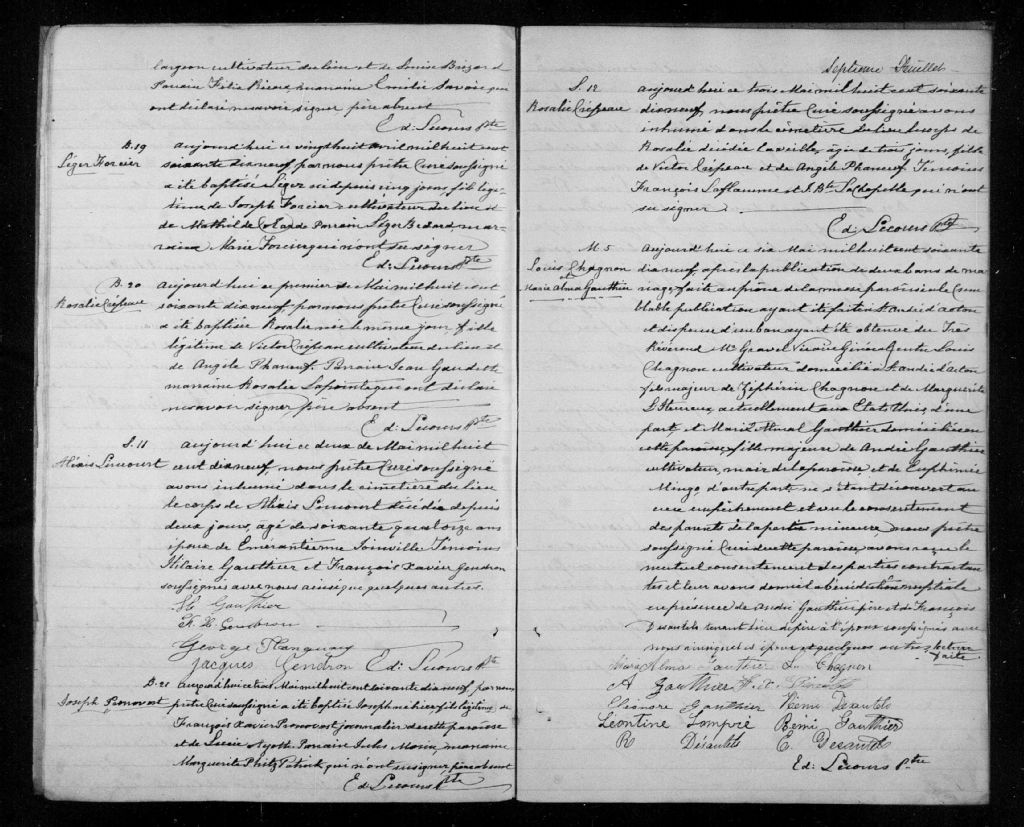 largeon cultivateur du lieu et de Louise Bizard
Parrain Félix Rioux marraine Emélie Savoie qui
ont déclaré ne savoir signer père absent
Ed: Lecours Ptre
B. 19
Léger Forcier
aujourd'hui ce vingthuit avril mil huit cent
soixante dixneuf par nous prêtre Curé soussigné
a été baptisé Léger né depuis cinq jours fils légi-
time de Joseph Forcier cultivateur du lieu et
de Mathilde Parrain Léger Bedard mar-
raine Marie Forcier qui n'ont su signer
Ed: Lecours Ptre
B. 20
Rosalie Crépeau
aujourd'hui ce premier de Mai mil huit cent
soixante dixneuf, par nous prêtre Curé soussigné
a été baptisée Rosalie née le même jour, fille
légitime de Victor Crépeau cultivateur du lieu et
de Angèle Phaneuf. Parrain Jean Gaudette
marraine Rosalie Lapointe qui ont déclaré
ne savoir signer, père absent
Ed: Lecours Ptre
S. 11
Alexis Lemourt
aujourd'hui ce deux de Mai mil huit
cent dixneuf, nous prêtre Curé soussigné
avons inhumé dans le cimetière du lieu
le corps de Alexis Lemourt décédé depuis
deux jours, agé de soixante quatorze ans
époux de Emérantienne Joinville Témoins
Hilaire Gauthier et François Xavier Gendron
soussignés avec nous ainsi que quelques autres.
H. Gauthier
F. X. Gendron
George Tanguay
Jacques Gendron Ed: Lecours Ptre
B. 21
Joseph Ponovost
aujourd'hui ce trois Mai mil huit cent soixante dixneuf par nous
prêtre Curé soussigné a été baptisé Joseph né hier fils légitime de
François Xavier Ponovost journalier de cette paroisse
et de Lucie Ayotte Parrain Jules Morin marraine
Marguerite Patrick qui n'ont su signer père absent
Ed: Lecours Ptre
Septieme Feuillet
S. 12
Rosalie Crépeau
aujourd'hui ce trois Mai mil huit cent soixante
dixneuf, nous prêtre Curé soussigné avons
inhumé dans le cimetière du lieu le corps de
Rosalie décédée la veille, agée de trois jours, fille
de Victor Crépeau et de Angèle Phaneuf. Témoins
François Laflamme et J. Bte Lachapelle qui n'ont
su signer.
Ed: Lecours Ptre
M. 5
Louis Chagnon
et
Marie Alma Gauthier
aujourd'hui ce six Mai mil huit cent soixante
dixneuf, après la publication de deux bans de ma-
riage faite au prône de la messe paroissiale sem-
blable publication ayant été faite à St. André d'acton
et dispense d'un ban ayant été obtenue du Très
Révérend Mr Gravel Vicaire Général entre Louis
Chagnon cultivateur domicilié à St. André d'Acton
fils majeur de Zéphirin Chagnon et de Marguerite
L'Heureux actuellement aux Etats Unis d'une
part, et Marie Alma Gauthier domiciliée en
cette paroisse, fille mineure de André Gauthier
cultivateur, maire de la paroisse et de Euphémie
Mingo d'autre part, ne s'étant découvert au
cun empêchement et vu le consentement
des parents de la partie mineure, nous prêtre
soussigné Curé de cette paroisse, avons reçu le
mutuel consentement des parties contractan
tes et leur avons donné la bénédiction nuptiale
en présence de André Gauthier père et de François
Désautels tenant lieu de père à l'époux soussignés avec
nous ainsi que les époux et quelques autres. lecture
faite
Marie Alma Gauthier L. Chagnon
A Gauthier
Eléonore Gauthier Rémi Désautels
Léontine Lompré Rémi Gauthier
R Désautels E. Desautels
Ed: Lecours Ptre